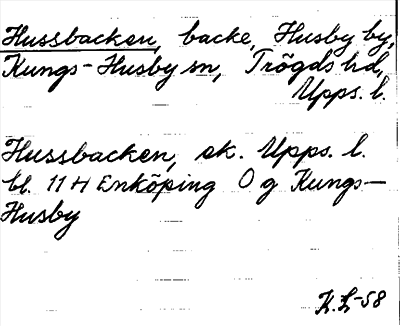 Hussbacken, backe, Husby by,
Kungs-Husby sn, Trögds hd,
Upps. l.
Hussbacken, ek. Upps. l.
bl. 11 H Enköping O g Kungs-
Husby
K.L-58